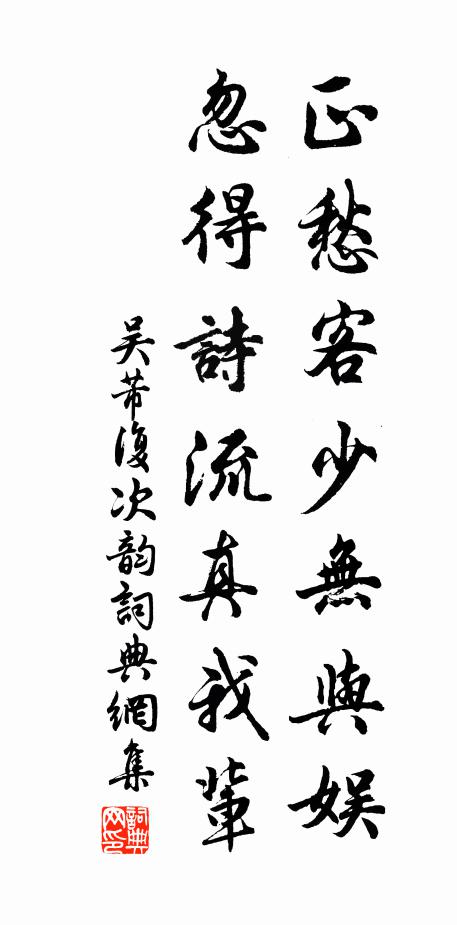 正愁客少無與娛
忽得詩流真我輩
吳芾復次韵詞典網集
詞典网印